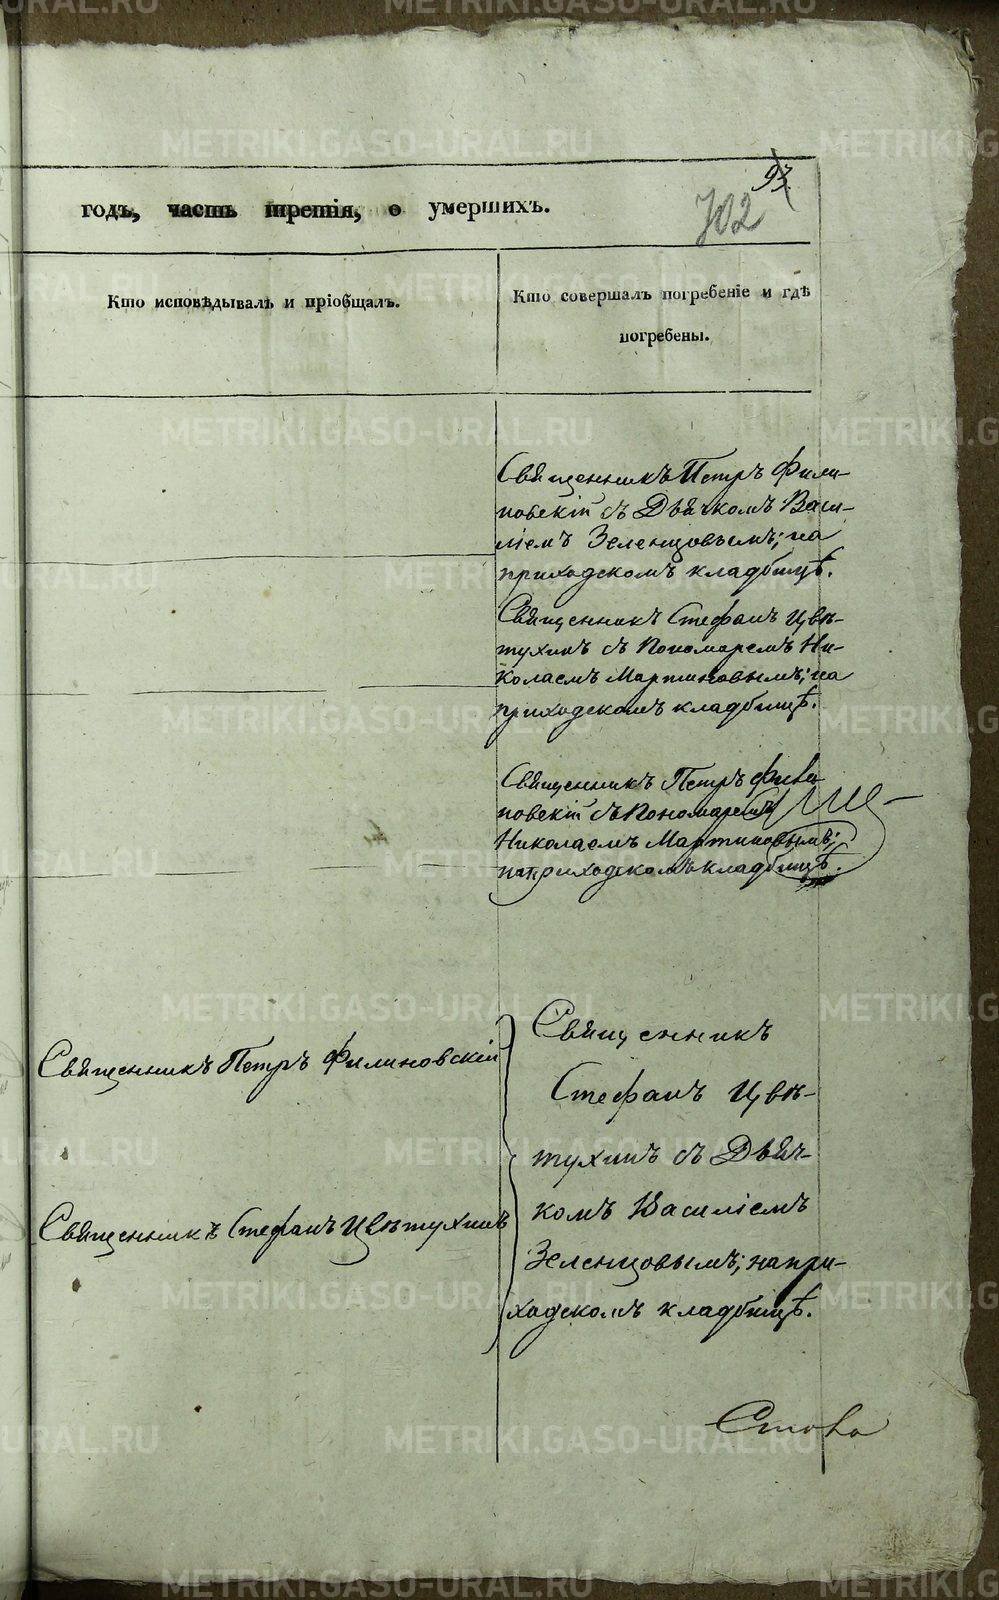 METRIKI.GASO-URAL.RU
93
годъ, часть третія, о умершихъ.
702
Кто исповѣдывалъ и пріобщалъ.
Кто совершалъ погребеніе и гдѣ
погребены.
Священникъ Петръ Фили-
новскій съ Дьячкомъ Васи-
ліемъ Зеленцовымъ; на
приходскомъ кладбищѣ.
Священникъ Стефанъ Цвѣ-
тухинъ съ Пономаремъ Ни-
колаемъ Мартиновымъ; на
приходскомъ кладбищѣ.
Священникъ Петръ Фили
новскій съ Пономаремъ
Николаемъ Мартиновымъ;
на приходскомъ кладбищѣ.
Священникъ Петръ Филиновскій
Священникъ Стефанъ Цвѣтухинъ
Священникъ
Стефанъ Цвѣ-
тухинъ съ Дьяч-
комъ Василіемъ
Зеленцовымъ; на при-
ходскомъ кладбищѣ.